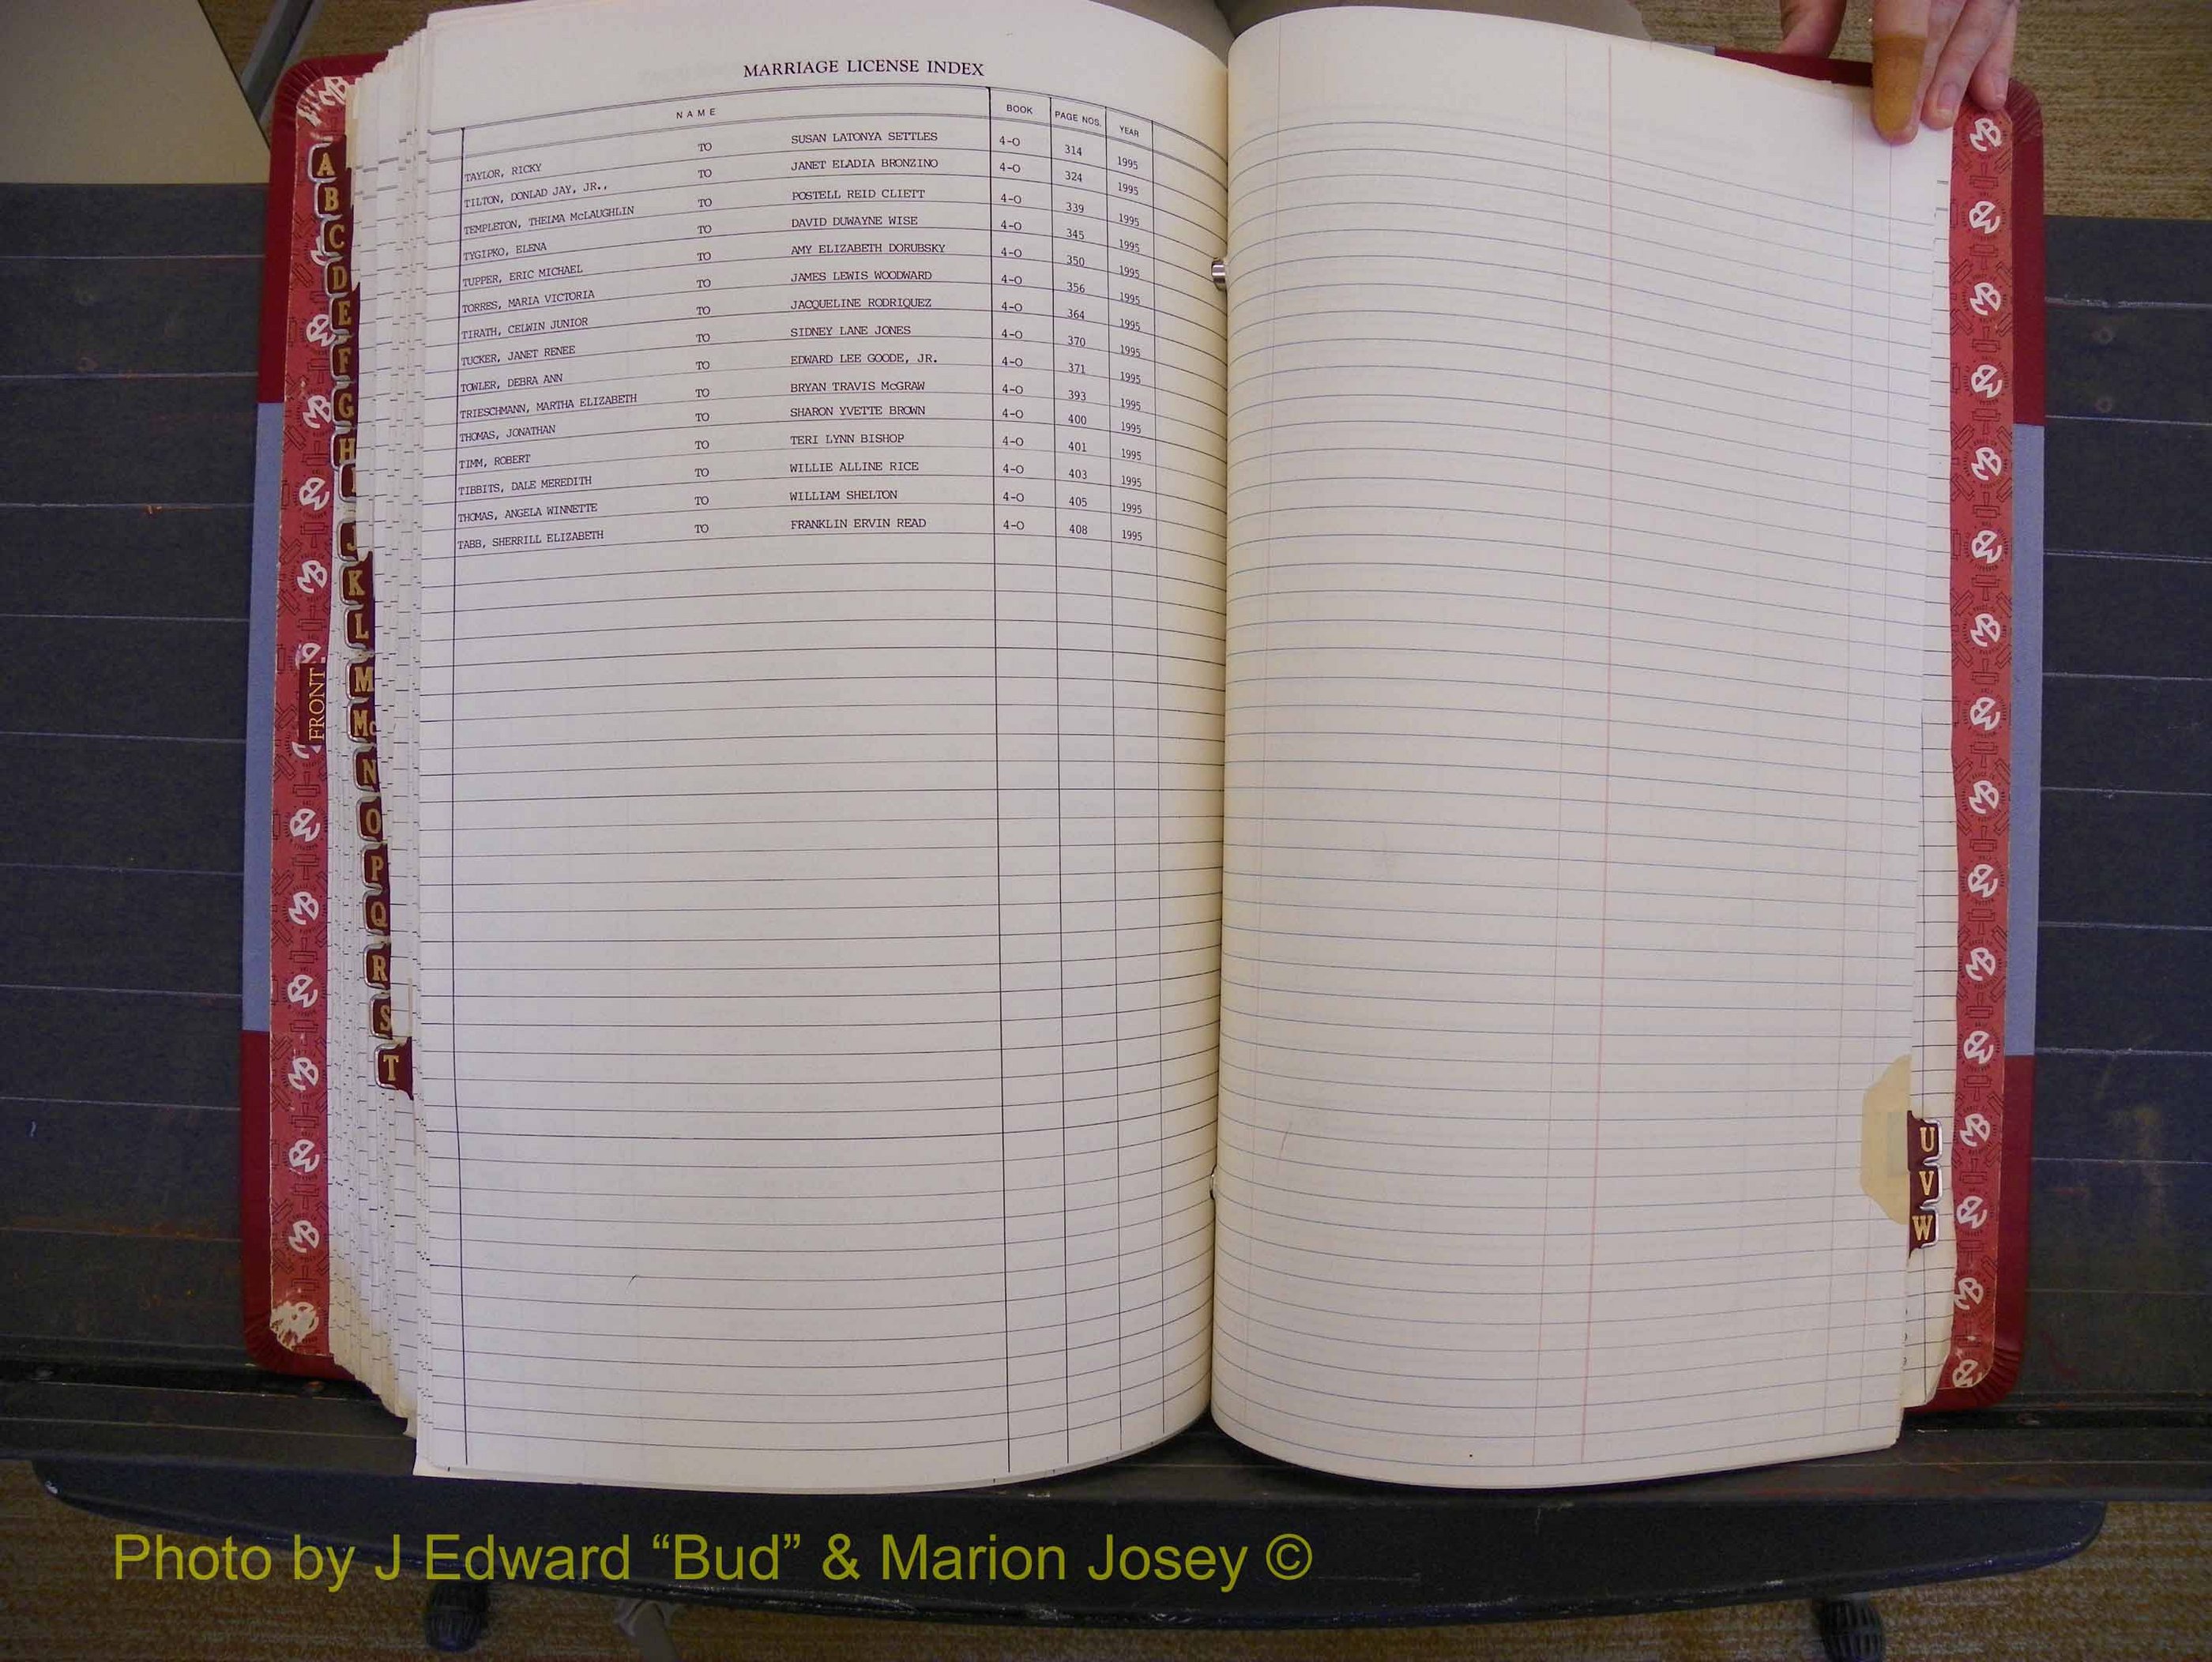 MARRIAGE LICENSE INDEX
NAME BOOK PAGE NOS. YEAR
TAYLOR, RICKY TO SUSAN LATONYA SETTLES 4-O 314 1995
TILTON, DONLAD JAY, JR., TO JANET ELADIA BRONZINO 4-O 324 1995
TEMPLETON, THELMA McLAUGHLIN TO POSTELL REID CLIETT 4-O 339 1995
TYGIPKO, ELENA TO DAVID DUWAYNE WISE 4-O 345 1995
TUPPER, ERIC MICHAEL TO AMY ELIZABETH DORUBSKY 4-O 350 1995
TORRES, MARIA VICTORIA TO JAMES LEWIS WOODWARD 4-O 356 1995
TIRATH, CELWIN JUNIOR TO JACQUELINE RODRIQUEZ 4-O 364 1995
TUCKER, JANET RENEE TO SIDNEY LANE JONES 4-O 370 1995
TOWLER, DEBRA ANN TO EDWARD LEE GOODE, JR. 4-O 371 1995
TRIESCHMANN, MARTHA ELIZABETH TO BRYAN TRAVIS McGRAW 4-O 393 1995
THOMAS, JONATHAN TO SHARON YVETTE BROWN 4-O 400 1995
TIMM, ROBERT TO TERI LYNN BISHOP 4-O 401 1995
TIBBITS, DALE MEREDITH TO WILLIE ALLINE RICE 4-O 403 1995
THOMAS, ANGELA WINNETTE TO WILLIAM SHELTON 4-O 405 1995
TABB, SHERRILL ELIZABETH TO FRANKLIN ERVIN READ 4-O 408 1995
A
B
C
D
E
F
G
H
I
J
K
L
M
Mc
N
O
P
Q
R
S
T
FRONT
U
V
W
Photo by J Edward “Bud” & Marion Josey ©